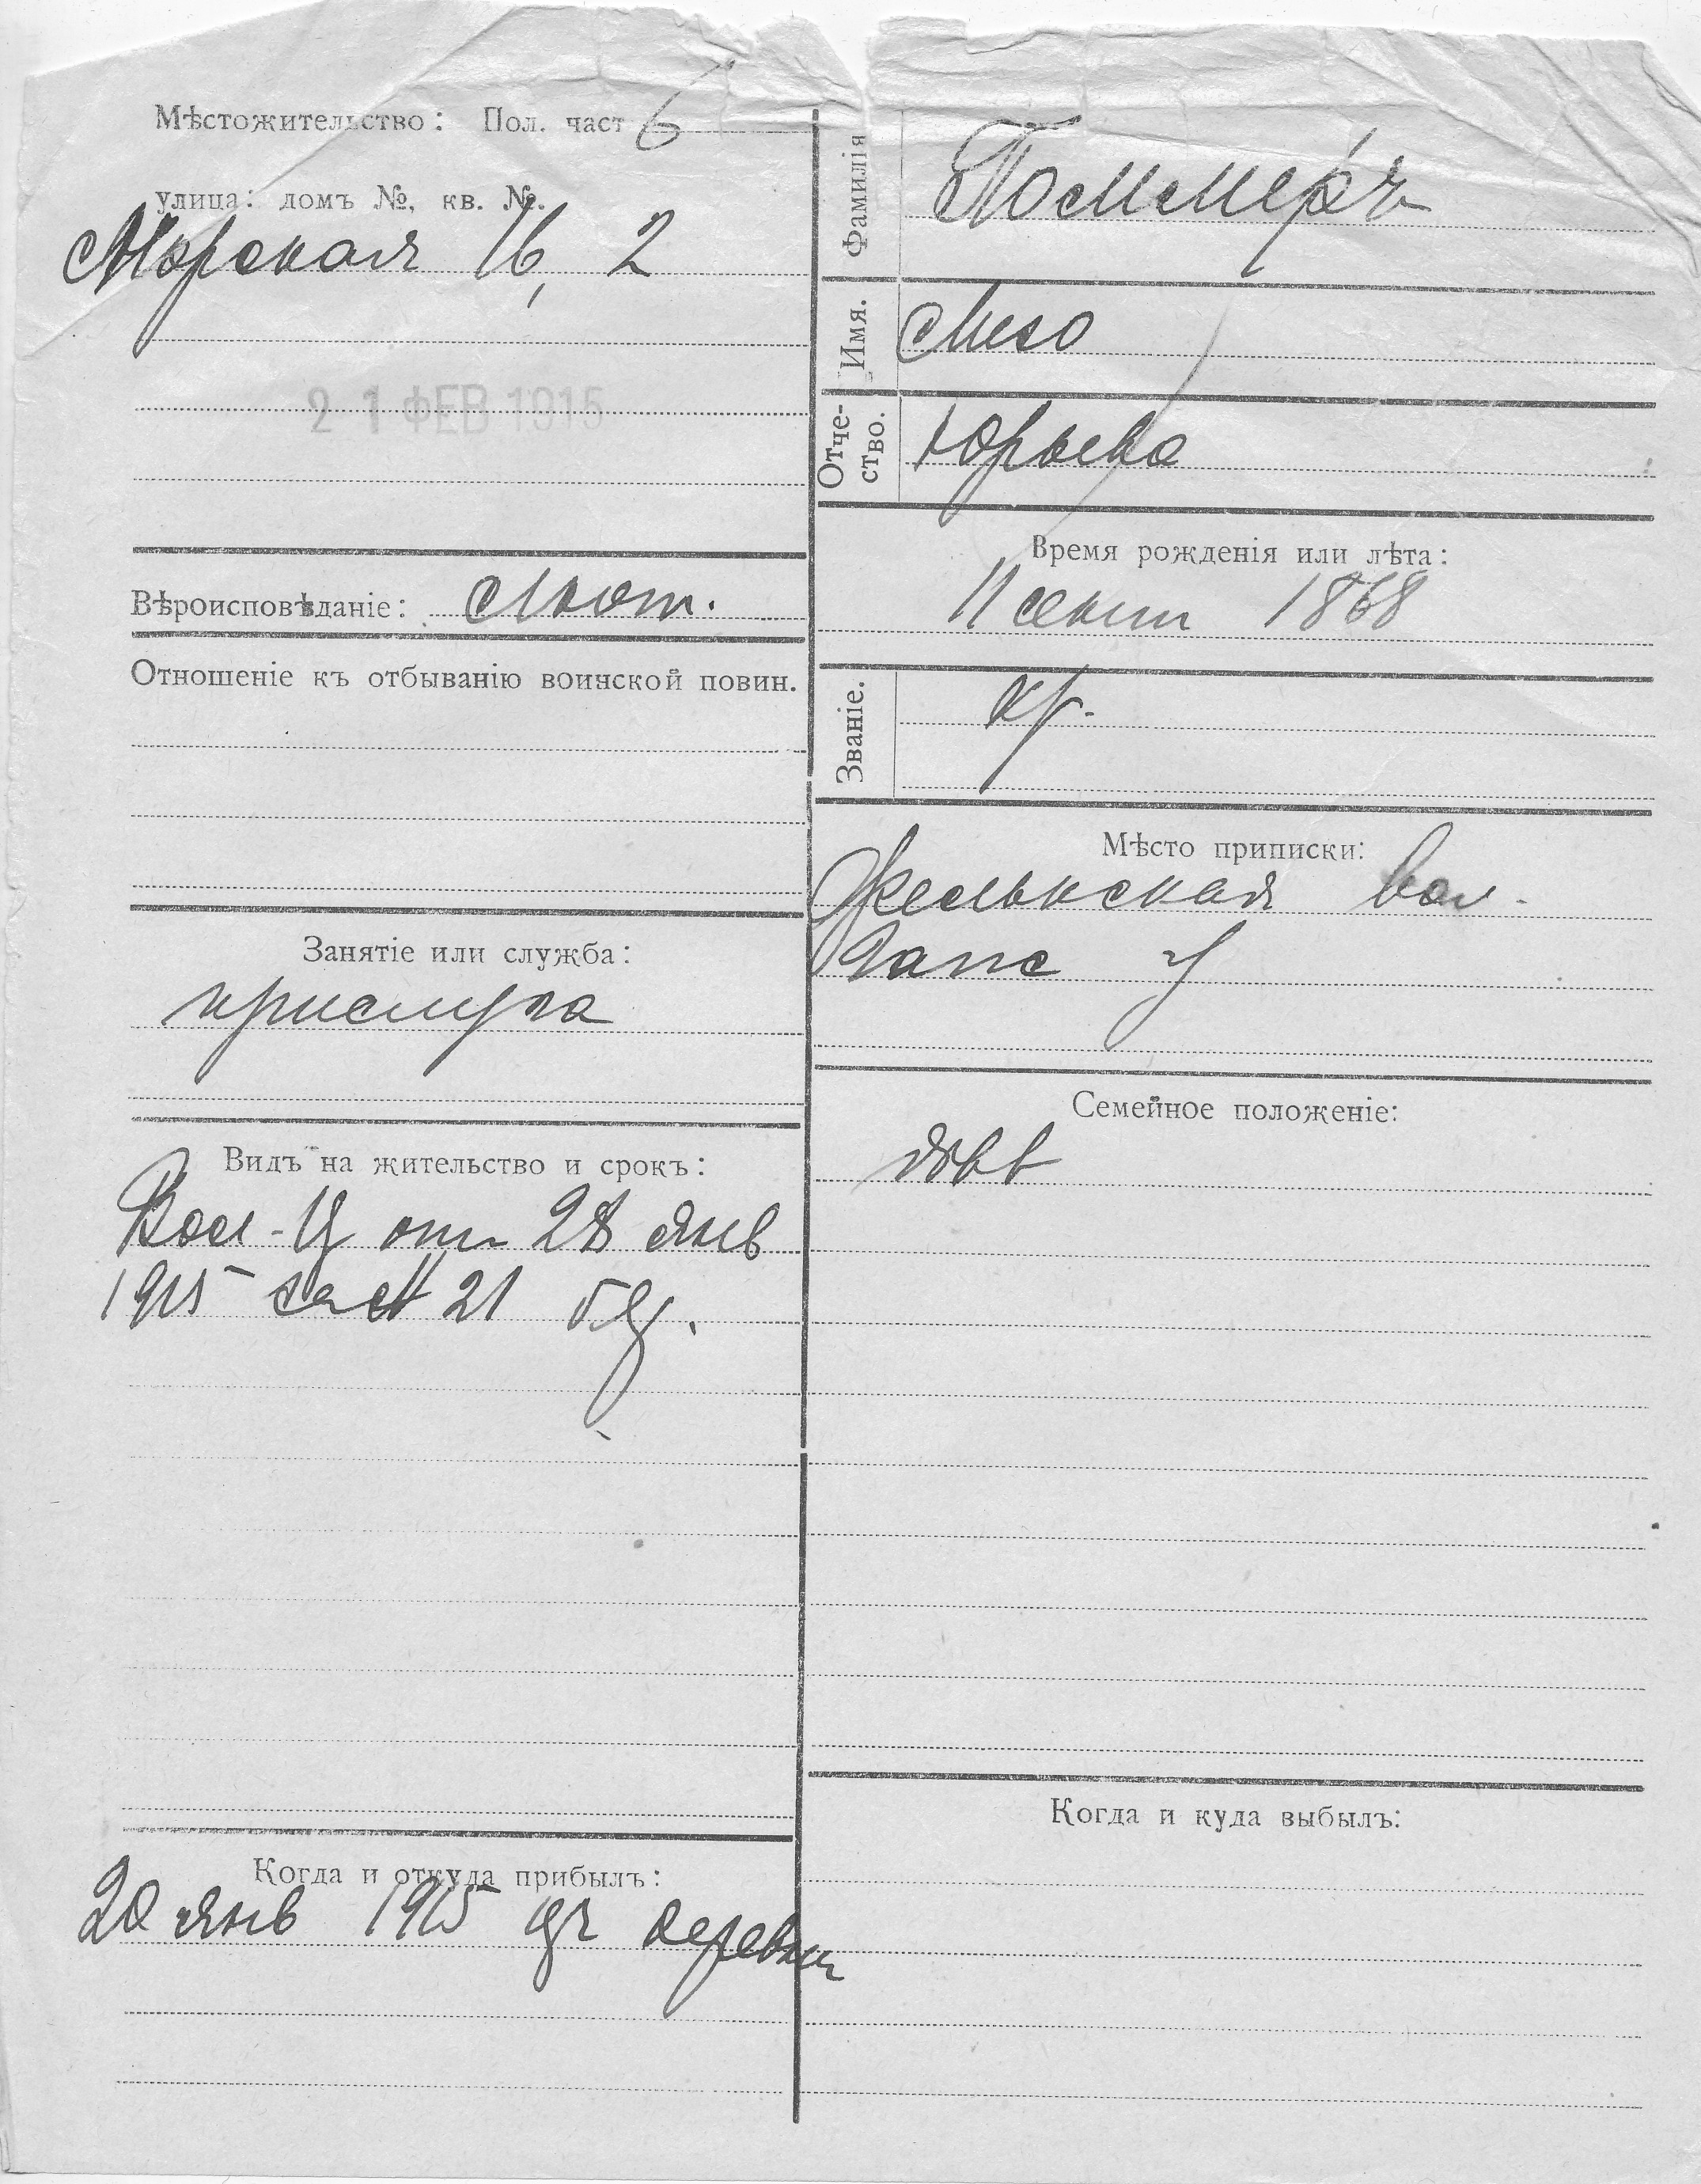 Мѣстожительство: Пол. част 6
улица: домъ №, кв. №.
Морская 16, 2
21 ФЕВ 1915
Вѣроисповѣданіе: Лют.
Отношеніе къ отбыванію воинской повин.
Занятіе или служба:
прислуга
Видъ на жительство и срокъ:
Вол. П от 28 янв
1915 за № 21
Когда и откуда прибылъ:
20 янв 1915 из деревни
Фамилія
Поммеръ
Имя.
Отче-
ство.
Юрьева
Время рожденія или лѣта:
11 сент 1868
Званіе.
кр.
Мѣсто приписки:
вол.
Гапс у
Семейное положеніе:
дѣв
Когда и куда выбылъ: